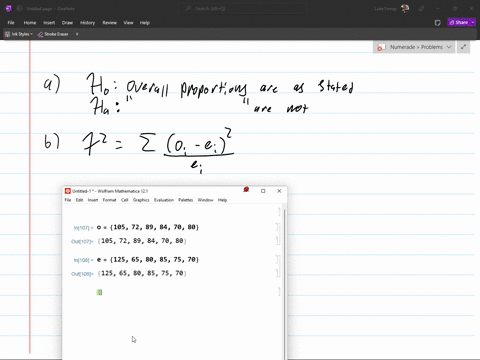 Untitled page - OneNote
File Home Insert Draw History Review View Help
Share
Ink Styles Stroke Eraser
Numerade > Problems
a) H₀: "Overall proportions" are as stated
Hₐ: " " are not
b) χ² = Σ (oᵢ - eᵢ)²
eᵢ
Untitled-1 * - Wolfram Mathematica 12.1
File Edit Insert Format Cell Graphics Evaluation Palettes Window Help
In[107]= o = {105, 72, 89, 84, 70, 80}
Out[107]= {105, 72, 89, 84, 70, 80}
In[108]= e = {125, 65, 80, 85, 75, 70}
Out[108]= {125, 65, 80, 85, 75, 70}